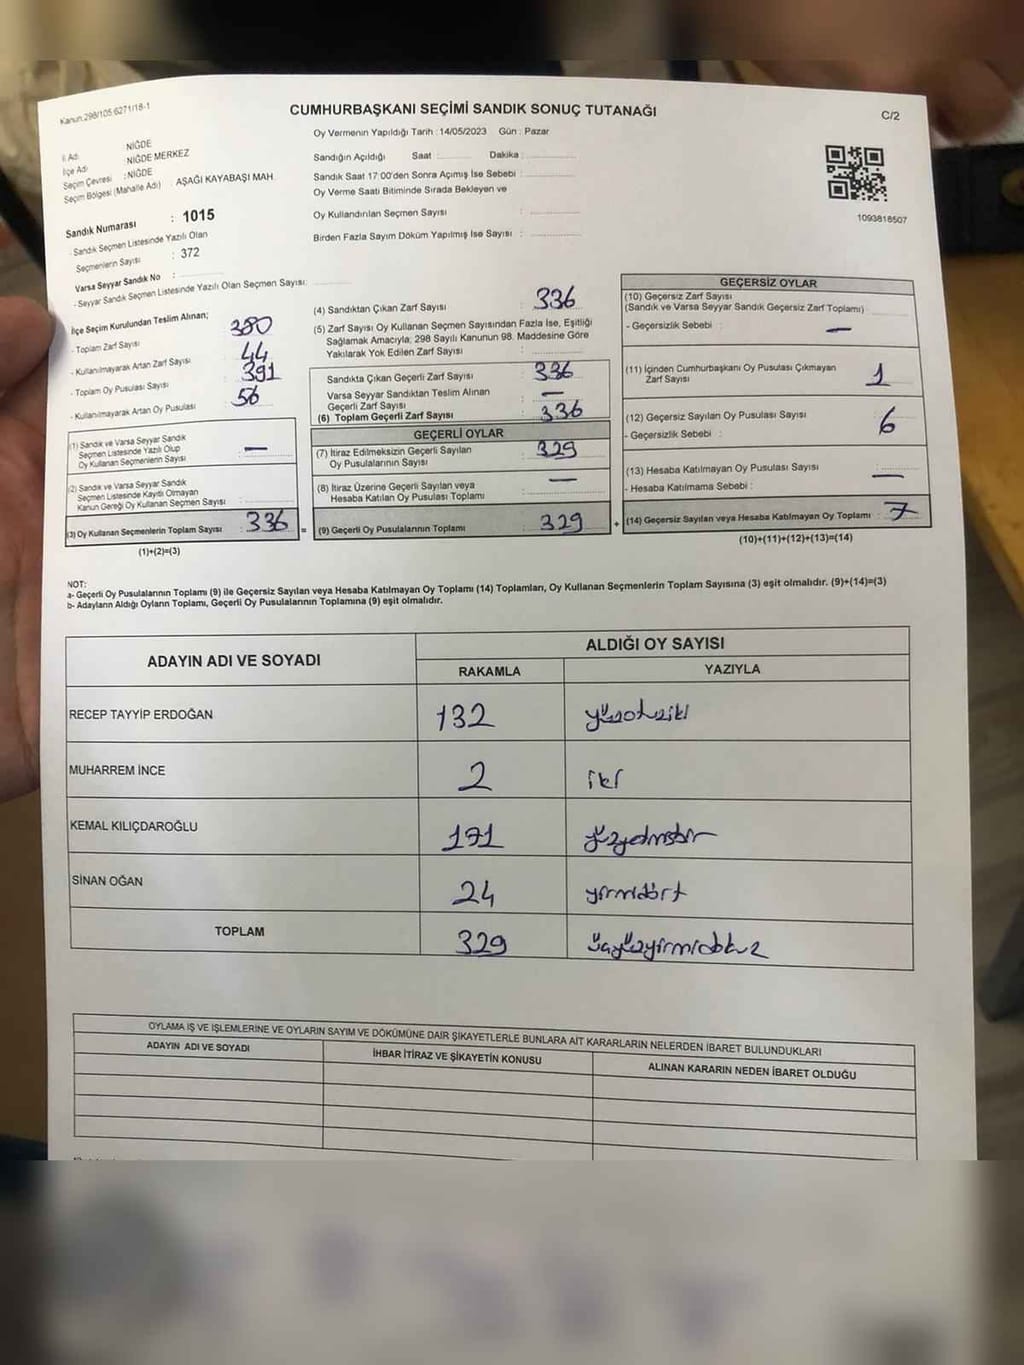 Kanun:298/105:6271/18-1
CUMHURBAŞKANI SEÇİMİ SANDIK SONUÇ TUTANAĞI
C/2
Oy Vermenin Yapıldığı Tarih : 14/05/2023 Gün : Pazar
İl Adı : NİĞDE
İlçe Adı : NİĞDE MERKEZ
Seçim Çevresi : NİĞDE
Seçim Bölgesi (Mahalle Adı) : AŞAĞI KAYABAŞI MAH.
Sandık Numarası : 1015
Sandık Seçmen Listesinde Yazılı Olan
Seçmenlerin Sayısı : 372
Varsa Seyyar Sandık No :
- Seyyar Sandık Seçmen Listesinde Yazılı Olan Seçmen Sayısı:
Sandığın Açıldığı Saat : Dakika :
Sandık Saat 17:00'den Sonra Açımış İse Sebebi :
Oy Verme Saati Bitiminde Sırada Bekleyen ve
Oy Kullandırılan Seçmen Sayısı :
Birden Fazla Sayım Döküm Yapılmış İse Sayısı :
1093818507
İlçe Seçim Kurulundan Teslim Alınan;
- Toplam Zarf Sayısı : 380
- Kullanılmayarak Artan Zarf Sayısı : 44
- Toplam Oy Pusulası Sayısı : 391
- Kullanılmayarak Artan Oy Pusulası : 56
(1) Sandık ve Varsa Seyyar Sandık
Seçmen Listesinde Yazılı Olup
Oy Kullanan Seçmenlerin Sayısı : —
(2) Sandık ve Varsa Seyyar Sandık
Seçmen Listesinde Kayıtlı Olmayan
Kanun Gereği Oy Kullanan Seçmen Sayısı :
(3) Oy Kullanan Seçmenlerin Toplam Sayısı : 336
(1)+(2)=(3)
=
(4) Sandıktan Çıkan Zarf Sayısı : 336
(5) Zarf Sayısı Oy Kullanan Seçmen Sayısından Fazla İse, Eşitliği
Sağlamak Amacıyla; 298 Sayılı Kanunun 98. Maddesine Göre
Yakılarak Yok Edilen Zarf Sayısı :
Sandıkta Çıkan Geçerli Zarf Sayısı : 336
Varsa Seyyar Sandıktan Teslim Alınan
Geçerli Zarf Sayısı : —
(6) Toplam Geçerli Zarf Sayısı : 336
GEÇERLİ OYLAR
(7) İtiraz Edilmeksizin Geçerli Sayılan
Oy Pusulalarının Sayısı : 329
(8) İtiraz Üzerine Geçerli Sayılan veya
Hesaba Katılan Oy Pusulası Toplamı : —
(9) Geçerli Oy Pusulalarının Toplamı : 329
+
GEÇERSİZ OYLAR
(10) Geçersiz Zarf Sayısı
(Sandık ve Varsa Seyyar Sandık Geçersiz Zarf Toplamı) :
- Geçersizlik Sebebi : —
(11) İçinden Cumhurbaşkanı Oy Pusulası Çıkmayan
Zarf Sayısı : 1
(12) Geçersiz Sayılan Oy Pusulası Sayısı : 6
- Geçersizlik Sebebi :
(13) Hesaba Katılmayan Oy Pusulası Sayısı : —
- Hesaba Katılmama Sebebi :
(14) Geçersiz Sayılan veya Hesaba Katılmayan Oy Toplamı : 7
(10)+(11)+(12)+(13)=(14)
NOT:
a- Geçerli Oy Pusulalarının Toplamı (9) ile Geçersiz Sayılan veya Hesaba Katılmayan Oy Toplamı (14) Toplamları, Oy Kullanan Seçmenlerin Toplam Sayısına (3) eşit olmalıdır. (9)+(14)=(3)
b- Adayların Aldığı Oyların Toplamı, Geçerli Oy Pusulalarının Toplamına (9) eşit olmalıdır.
ADAYIN ADI VE SOYADI
ALDIĞI OY SAYISI
RAKAMLA YAZIYLA
RECEP TAYYİP ERDOĞAN 132 yüzotuziki
MUHARREM İNCE 2 iki
KEMAL KILIÇDAROĞLU 171 yüzyetmişbir
SİNAN OĞAN 24 yirmidört
TOPLAM 329 üçyüzyirmidokuz
OYLAMA İŞ VE İŞLEMLERİNE VE OYLARIN SAYIM VE DÖKÜMÜNE DAİR ŞİKAYETLERLE BUNLARA AİT KARARLARIN NELERDEN İBARET BULUNDUKLARI
ADAYIN ADI VE SOYADI İHBAR İTİRAZ VE ŞİKAYETİN KONUSU ALINAN KARARIN NEDEN İBARET OLDUĞU